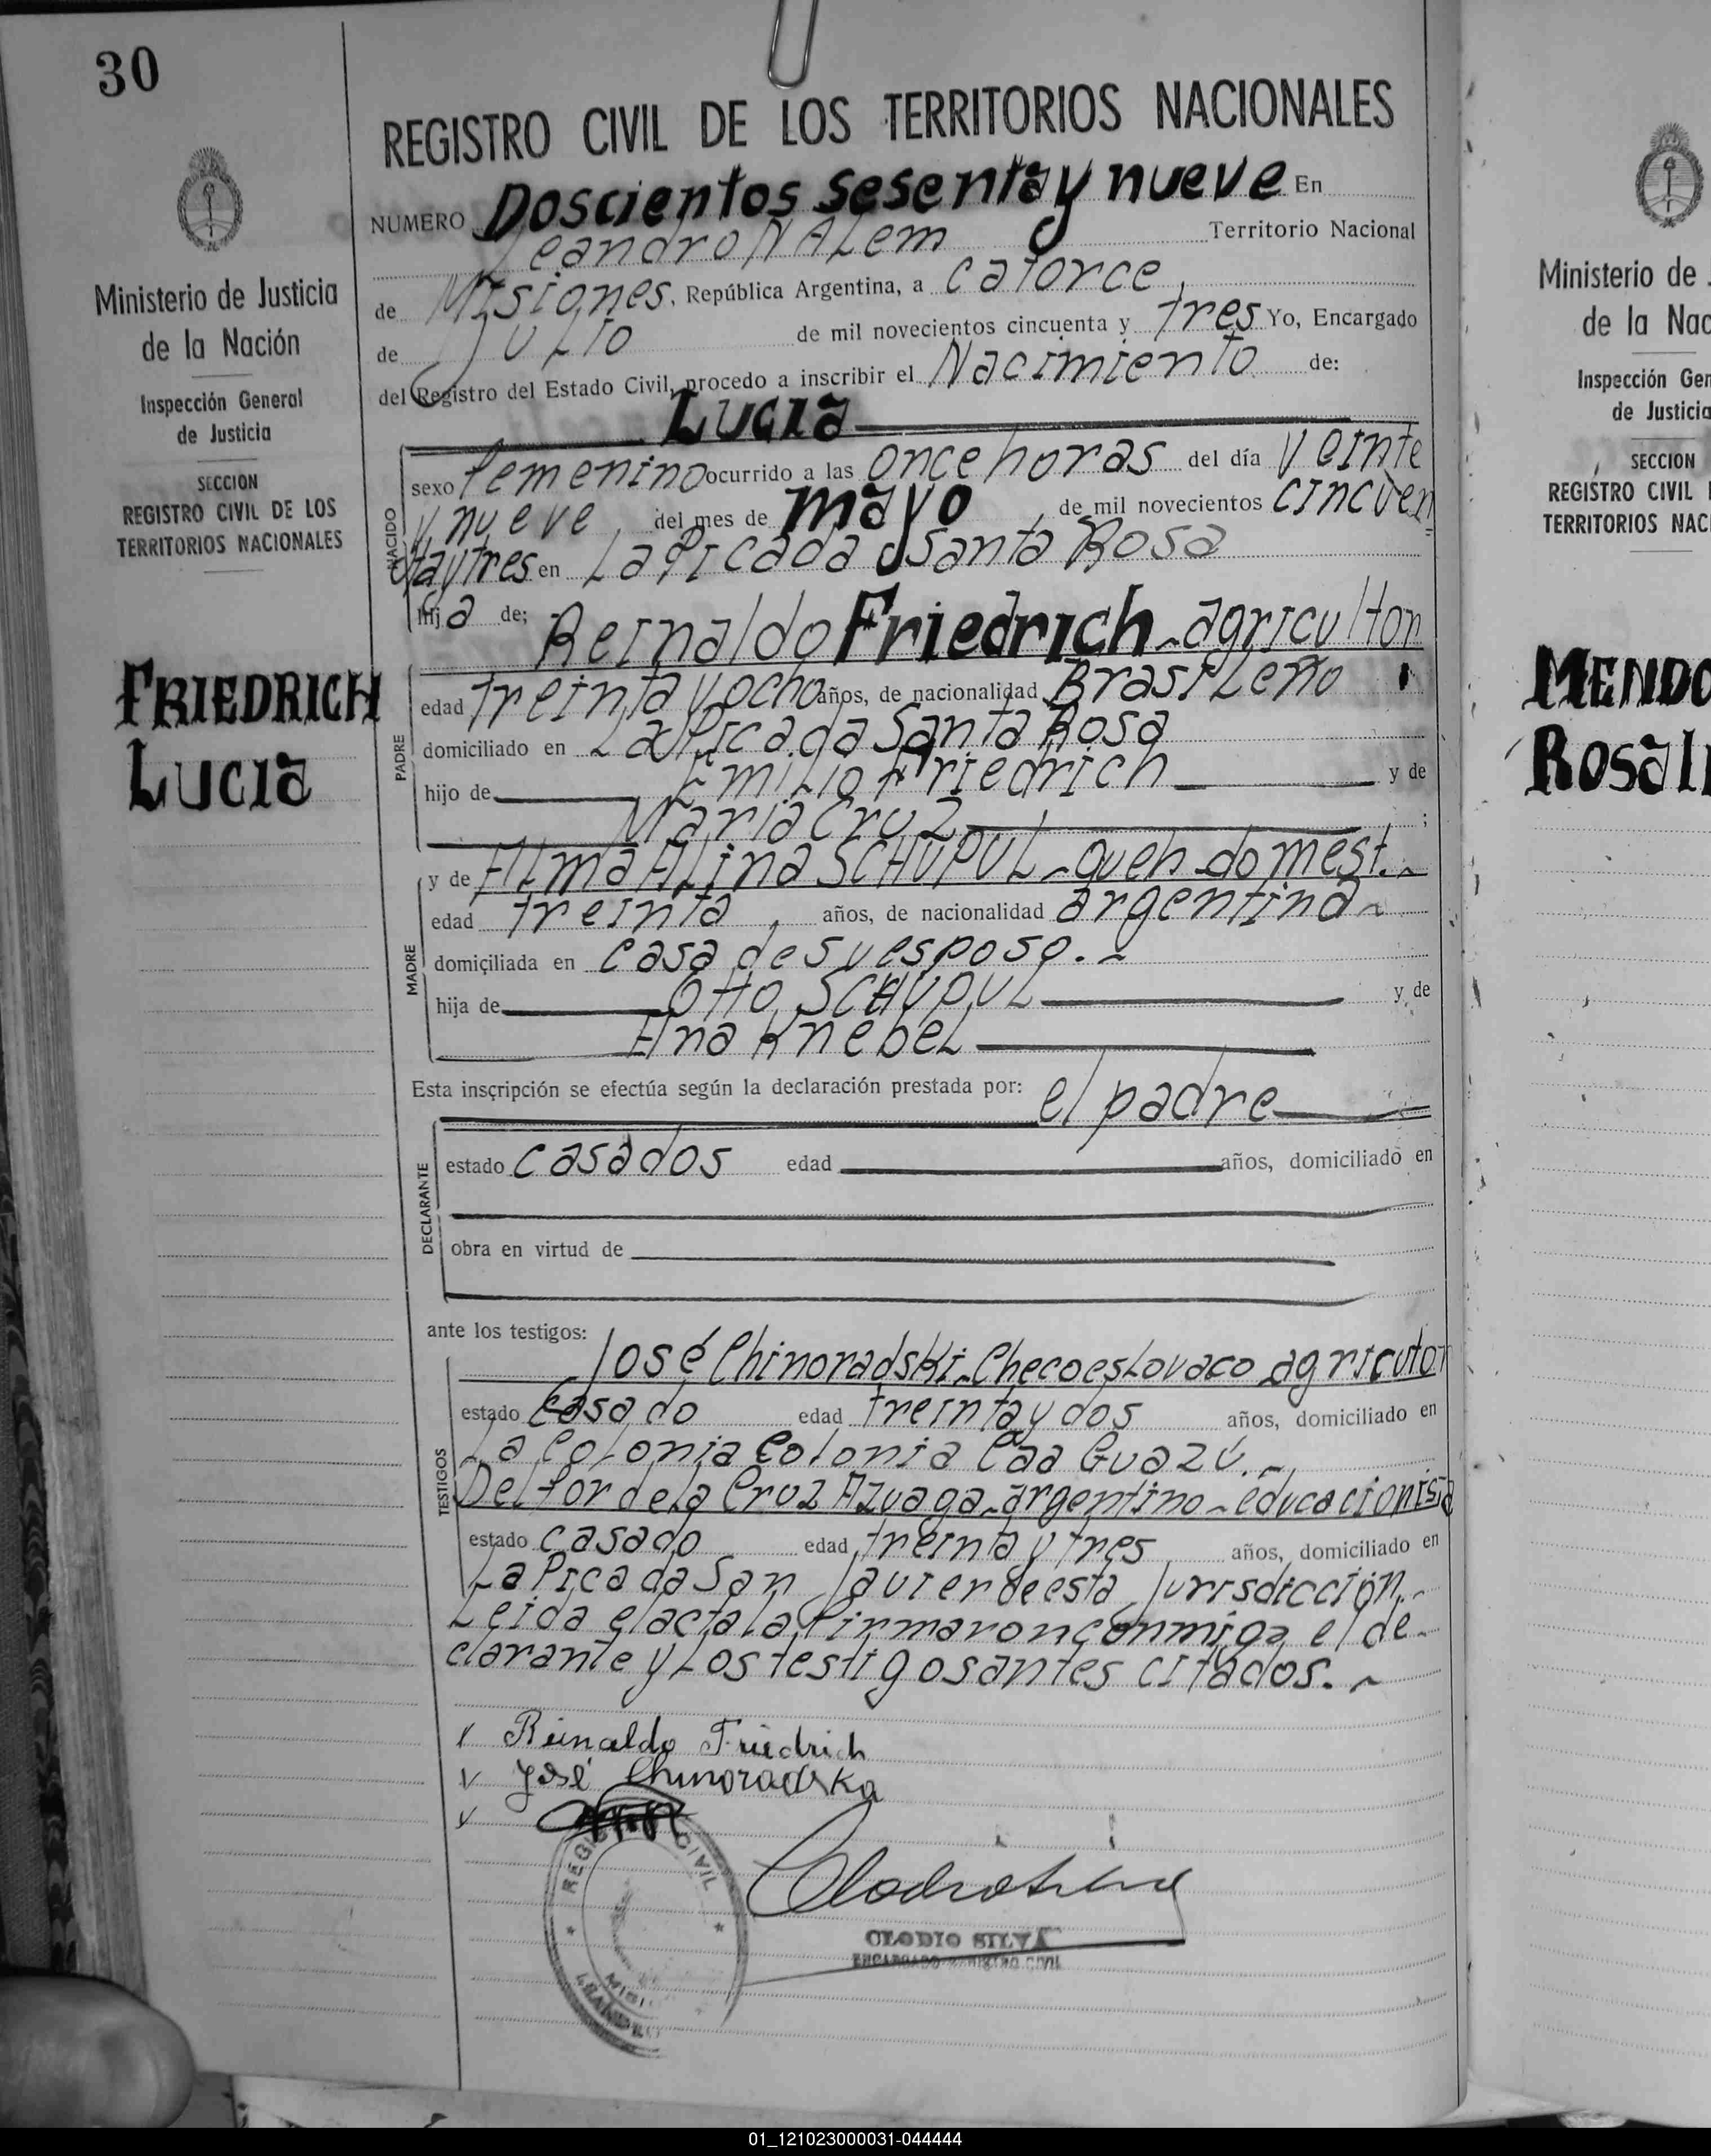 30
REGISTRO CIVIL DE LOS TERRITORIOS NACIONALES
NUMERO Doscientos sesenta y nueve En
Leandro N ALem Territorio Nacional
de Misiones, República Argentina, a catorce
de Julio de mil novecientos cincuenta y tres Yo, Encargado
del Registro del Estado Civil, procedo a inscribir el Nacimiento de:
Lucia
NACIDO
sexo femenino ocurrido a las once horas del día veinte
y nueve del mes de mayo de mil novecientos cincuen
ta y tres en La Picada Santa Rosa
hija de: Reinaldo Friedrich - agricultor
PADRE
edad treinta y ocho años, de nacionalidad BrasiLeño
domiciliado en La Picada Santa Rosa
hijo de Emilio Friedrich y de
Maria Cruz ;
MADRE
y de ALma ALina SCHUPUL - queh domest.
edad treinta, años, de nacionalidad argentina
domiciliada en casa de su esposo.
hija de Otto SCHUPUL y de
Ana KnebeL
Esta inscripción se efectúa según la declaración prestada por: el padre
DECLARANTE
estado casados edad años, domiciliado en
obra en virtud de
ante los testigos:
TESTIGOS
José Chinoradski - ChecoesLovaco agricutor
estado Casado edad treinta y dos años, domiciliado en
La Colonia Colonia Caa Guazú.
Delfor de la Cruz Azuaga - argentino - educacionista
estado casado edad treinta y tres años, domiciliado en
La Picada San Javier de esta Jurisdicción.
Leida el acta la firmaron conmigo el de-
clarante y Los testigos antes citados.
Reinaldo Friedrich
José Chinoradska
CLODIO SILVA
ENCARGADO REGISTRO CIVIL
REGISTRO CIVIL
Ministerio de Justicia
de la Nación
Inspección General
de Justicia
SECCION
REGISTRO CIVIL DE LOS
TERRITORIOS NACIONALES
FRIEDRICH
Lucia
Ministerio de
de la Nac
Inspección Gen
de Justicia
SECCION
REGISTRO CIVIL
TERRITORIOS NAC
MENDO
Rosali
01_121023000031-044444